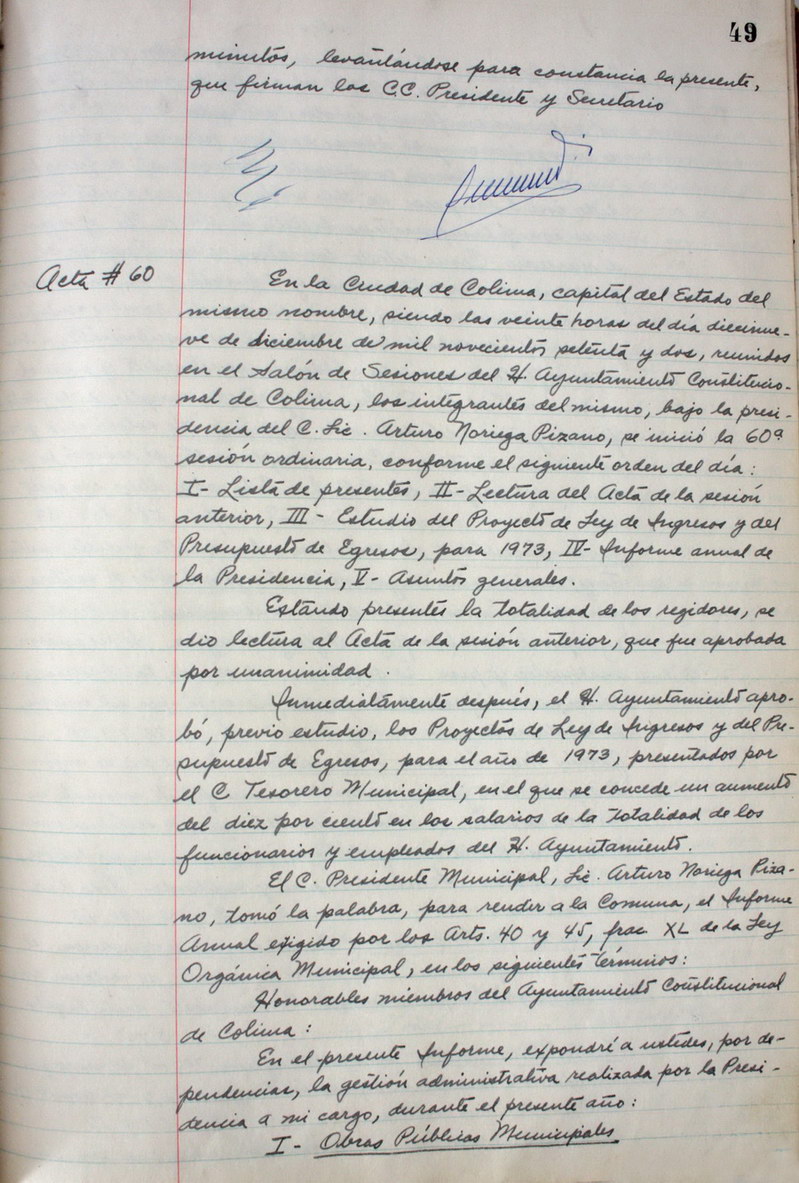 49
minutos, levantándose para constancia la presente,
que firman los C.C. Presidente y Secretario
Acta # 60
En la Ciudad de Colima, capital del Estado del
mismo nombre, siendo las veinte horas del día diecinue-
ve de diciembre de mil novecientos setenta y dos, reunidos
en el Salón de Sesiones del H. Ayuntamiento Constitucio-
nal de Colima, los integrantes del mismo, bajo la presi-
dencia del C. Lic. Arturo Noriega Pizano, se inició la 60ª
sesión ordinaria, conforme el siguiente orden del día:
I- Lista de presentes, II- Lectura del Acta de la sesión
anterior, III- Estudio del Proyecto de Ley de Ingresos y del
Presupuesto de Egresos, para 1973, IV- Informe anual de
la Presidencia, V- Asuntos generales.
Estando presentes la totalidad de los regidores, se
dio lectura al Acta de la sesión anterior, que fue aprobada
por unanimidad.
Inmediatamente después, el H. Ayuntamiento apro-
bó, previo estudio, los Proyectos de Ley de Ingresos y del Pre-
supuesto de Egresos, para el año de 1973, presentados por
el C Tesorero Municipal, en el que se concede un aumento
del diez por ciento en los salarios de la totalidad de los
funcionarios y empleados del H. Ayuntamiento.
El C. Presidente Municipal, Lic. Arturo Noriega Piza-
no, tomó la palabra, para rendir a la Comuna, el Informe
Anual exigido por los Arts. 40 y 45, frac XL de la Ley
Orgánica Municipal, en los siguientes términos:
Honorables miembros del Ayuntamiento Constitucional
de Colima:
En el presente Informe, expondré a ustedes, por de-
pendencias, la gestión administrativa realizada por la Presi-
dencia a mi cargo, durante el presente año:
I- Obras Públicas Municipales